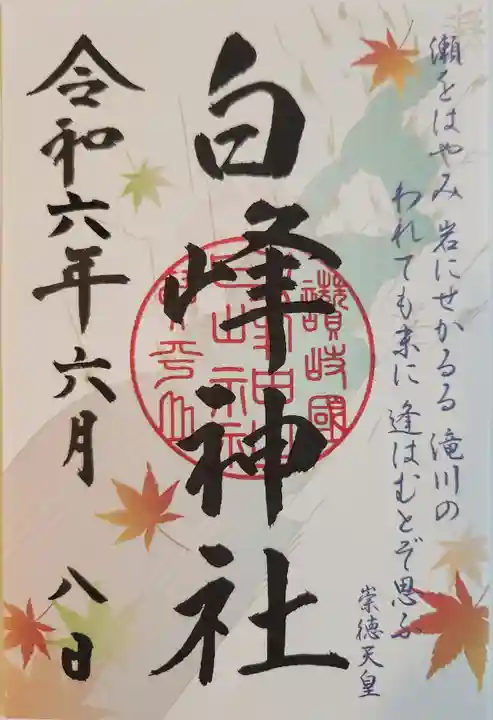 瀬をはやみ 岩にせかるる 滝川の
われても末に 逢はむとぞ思ふ
崇徳天皇
白峰神社
讃岐國
令和六年六月 八日